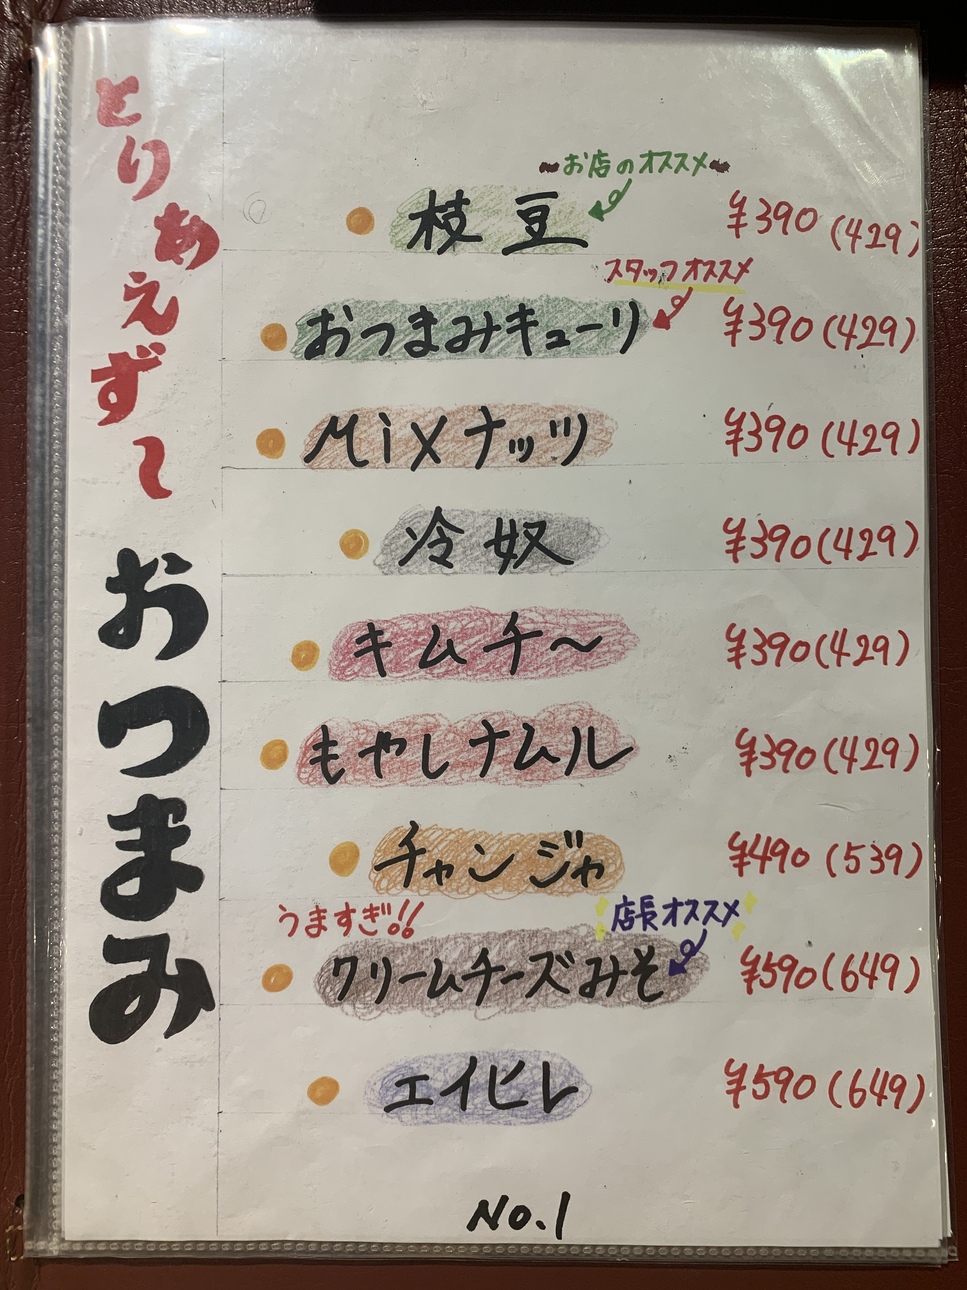 とりあえずー おつまみ
お店のオススメ
枝豆 ¥390 (429)
スタッフオススメ
おつまみキューリ ¥390 (429)
Mixナッツ ¥390 (429)
冷奴 ¥390 (429)
キムチ〜 ¥390 (429)
もやしナムル ¥390 (429)
チャンジャ ¥490 (539)
うますぎ!! 店長オススメ
クリームチーズみそ ¥590 (649)
エイヒレ ¥590 (649)
No.1